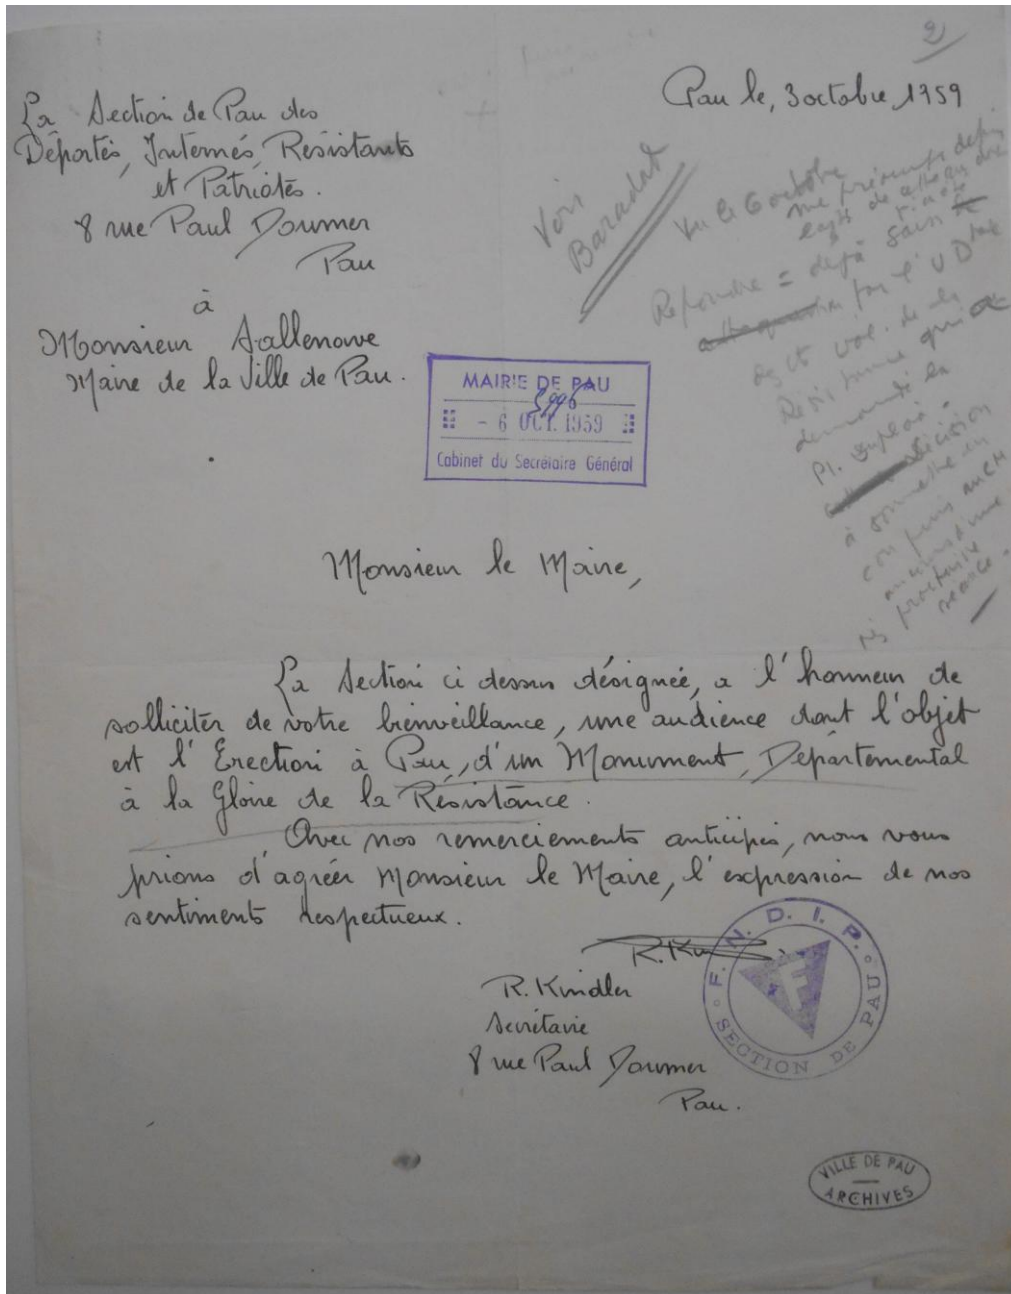 2
Pau le, 3 octobre 1959
La Section de Pau des
Déportés, Internés, Résistants
et Patriotes.
8 rue Paul Doumer
Pau
à
Monsieur Sallenave
Maire de la Ville de Pau.
Voir
Baradat
Vu le 6 octobre
Répondre = déjà saisi
par l'UD
demandé la
Pl.
décision
à
séance
MAIRIE DE PAU
5996
- 6 OCT. 1959
Cabinet du Secrétaire Général
Monsieur le Maire,
La Section ci dessus désignée, a l'honneur de
solliciter de votre bienveillance, une audience dont l'objet
est l'Erection à Pau, d'un Monument, Départemental
à la Gloire de la Résistance.
Avec nos remerciements anticipés, nous vous
prions d'agréer Monsieur le Maire, l'expression de nos
sentiments respectueux.
R. Kindler
Secrétaire
8 rue Paul Doumer
Pau.
F. N. D. I. P.
F
SECTION DE PAU
VILLE DE PAU
ARCHIVES